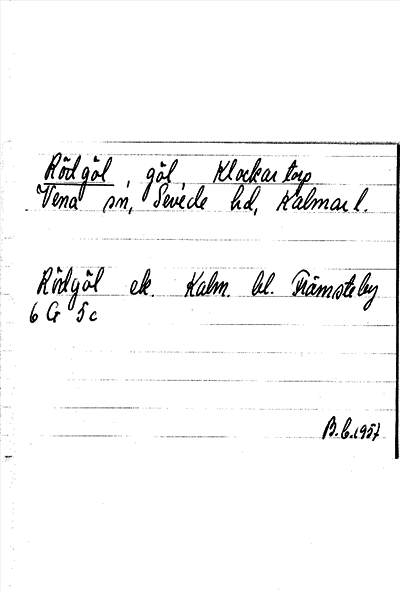 Rödgöl, göl, Klockartorp
Vena sn, Sevede hd, Kalmar l.
Rödgöl ek. Kalm. bl. Främsteby
6 G 5c
B.C. 1957